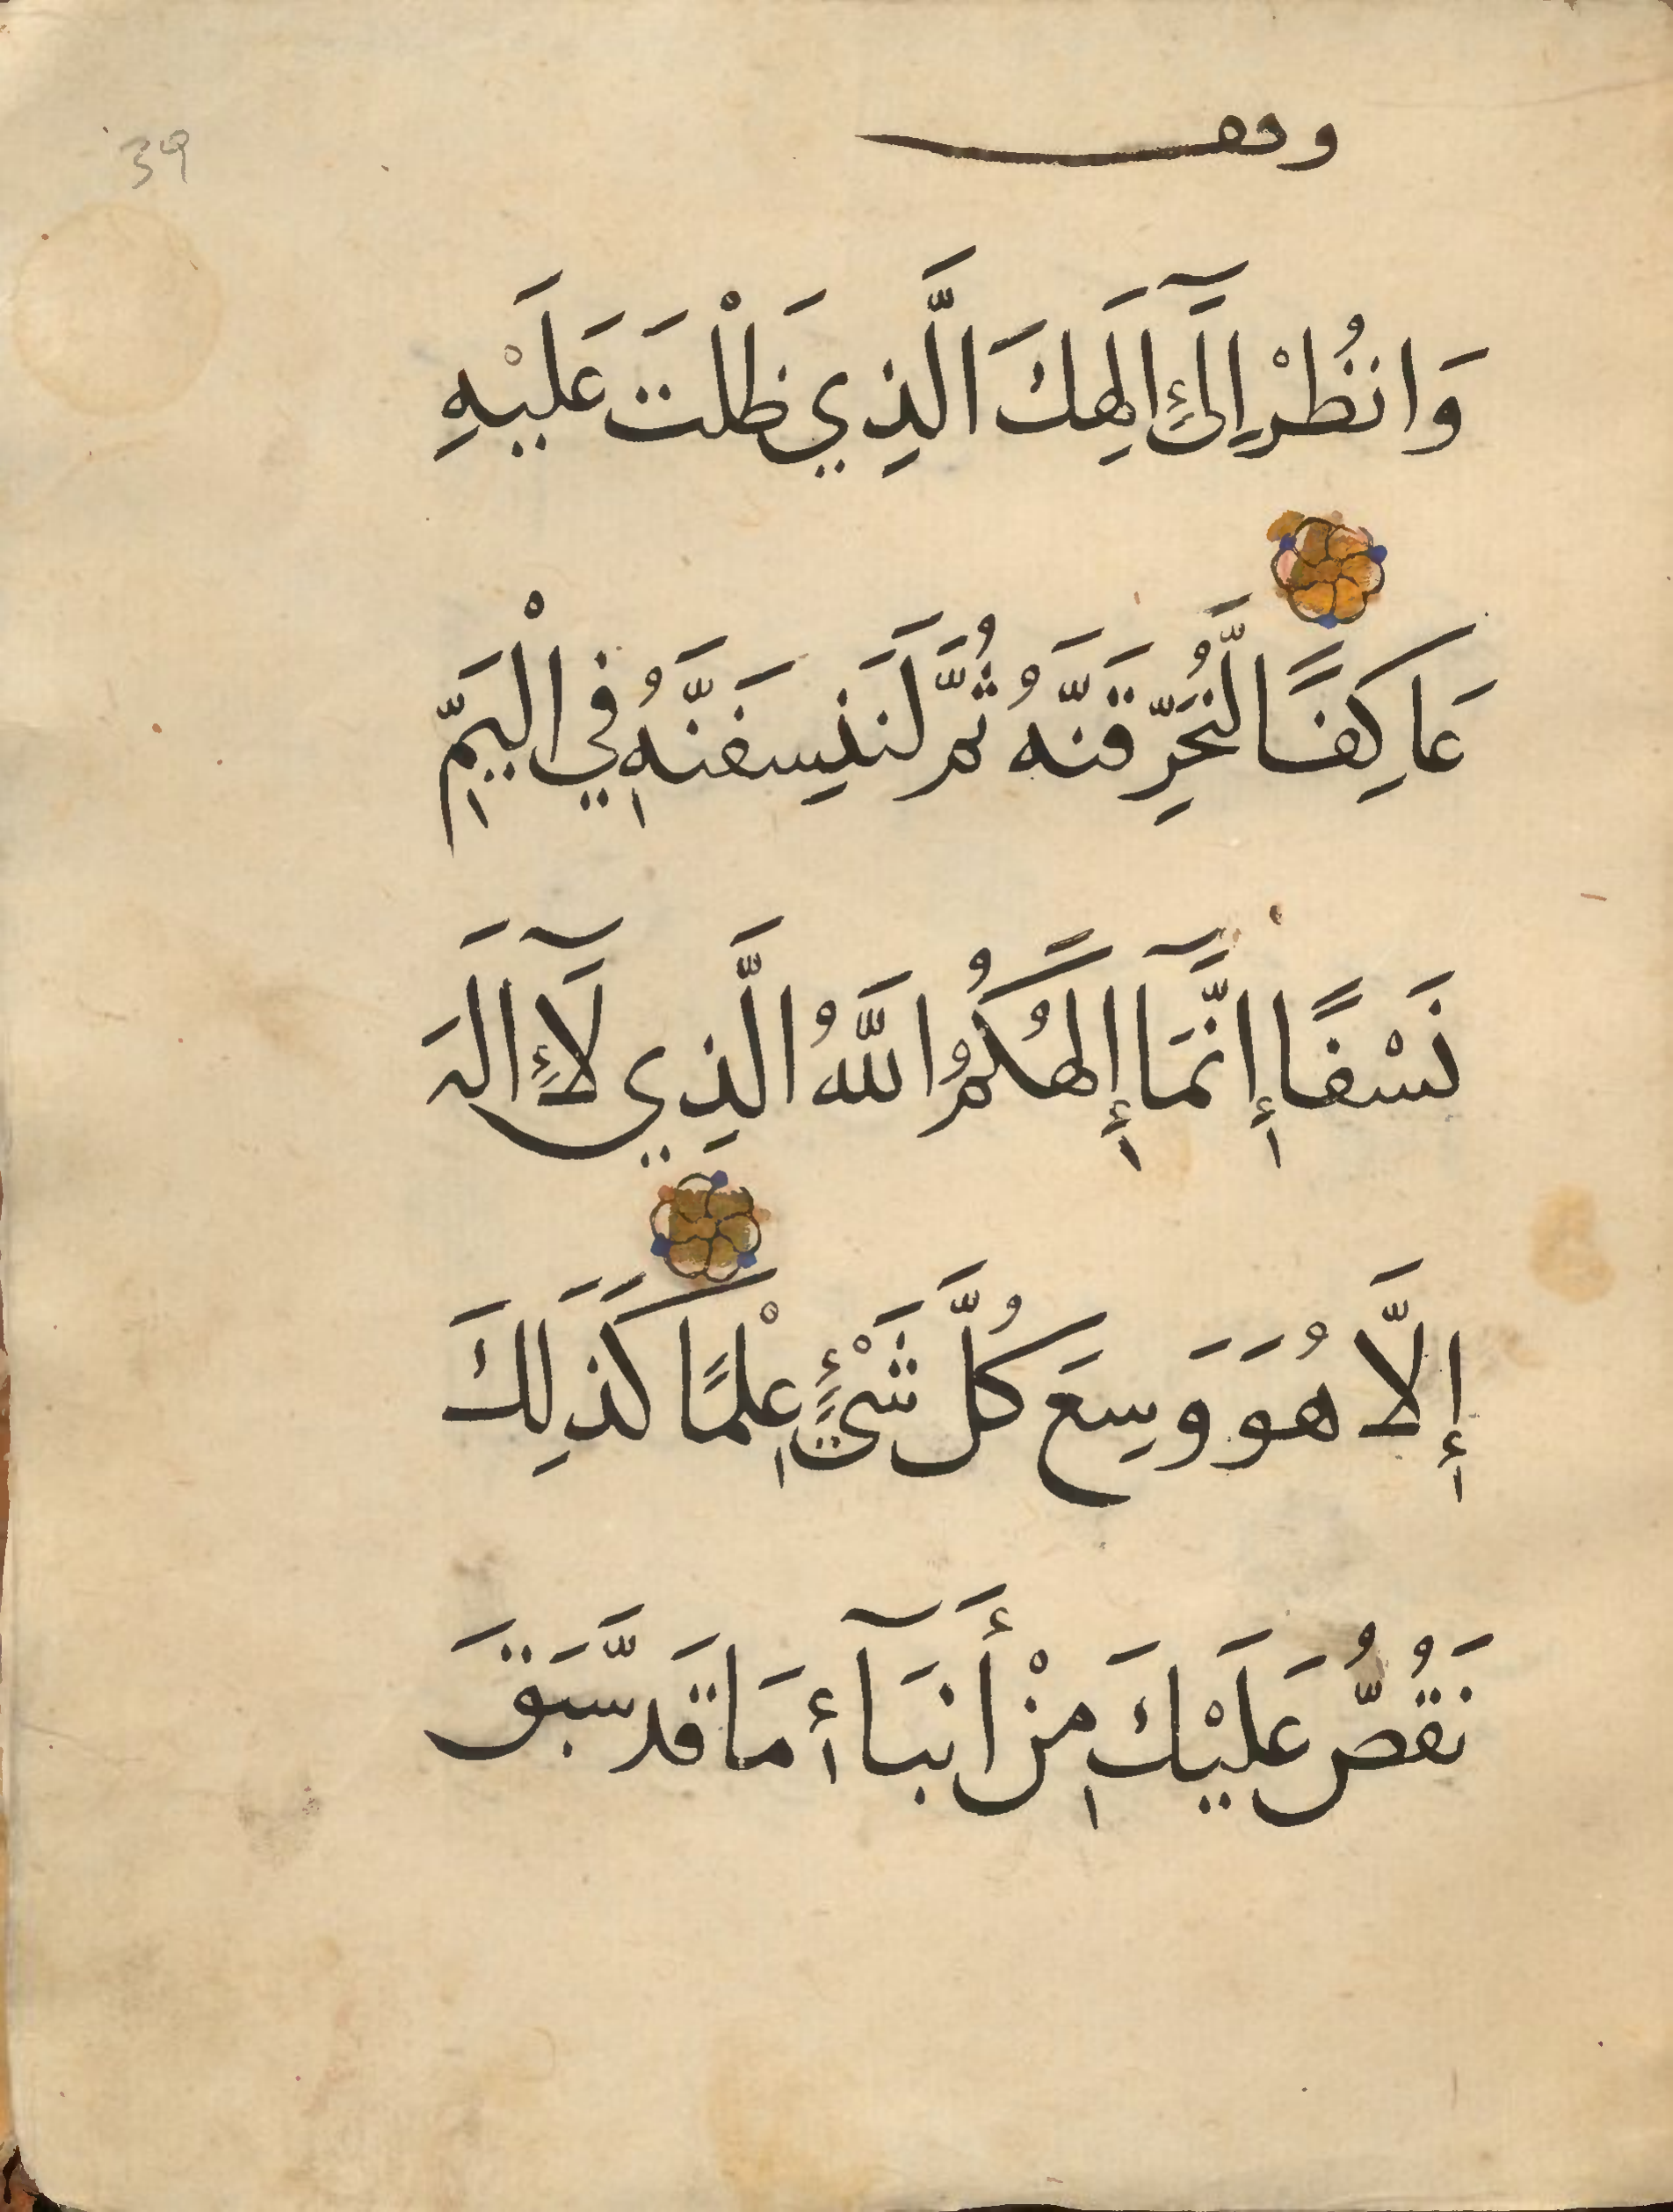 39
وقف
وَانظُرْ إِلَىٰٓ إِلَهِكَ الَّذِي ظَلْتَ عَلَيْهِ
عَاكِفًا لَّنُحَرِّقَنَّهُ ثُمَّ لَنَنسِفَنَّهُ فِي الْيَمِّ
نَسْفًا إِنَّمَآ إِلَهُكُمُ اللَّهُ الَّذِي لَآ إِلَهَ
إِلَّا هُوَ وَسِعَ كُلَّ شَيْءٍ عِلْمًا كَذَلِكَ
نَقُصُّ عَلَيْكَ مِنْ أَنبَآءِ مَا قَد سَّبَقَ